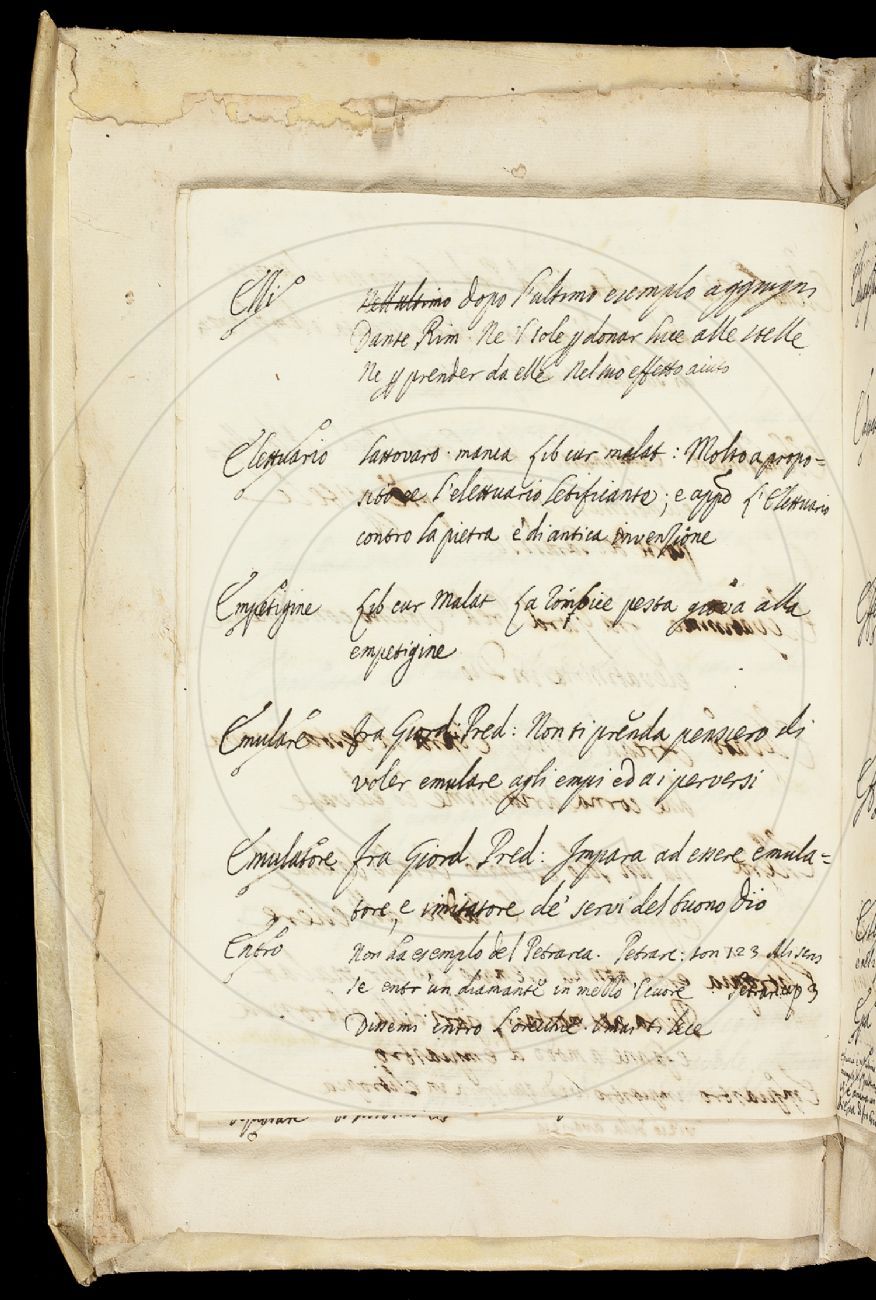 Elli
Nell'ultimo dopo l'ultimo esempio aggiugni
Dante Rim. Ne 'l sole p donar luce alle stelle
Ne p prender da elle Nel suo effetto aiuto
Elettuario Lattovaro. manca Lib cur malat: Molto a propo=
sito è l'elettuario letificante; e app.o L'Elettuario
contro la pietra è di antica invenzione
Empetigine Lib cur Malat La Pomice pesta giova alla
empetigine
Emulare fra Giord: Pred: Non ti prenda pensiero di
voler emulare agli empi ed a i perversi
Emulatore fra Giord Pred: Impara ad essere emula=
tore, e imitatore de' servi del buono Dio
Entro Non ha esempio del Petrarca. Petrarc: son 123
Se entr' un diamante in mezzo 'l cuore Petrar cap 3
Dissemi entro l'orecchie